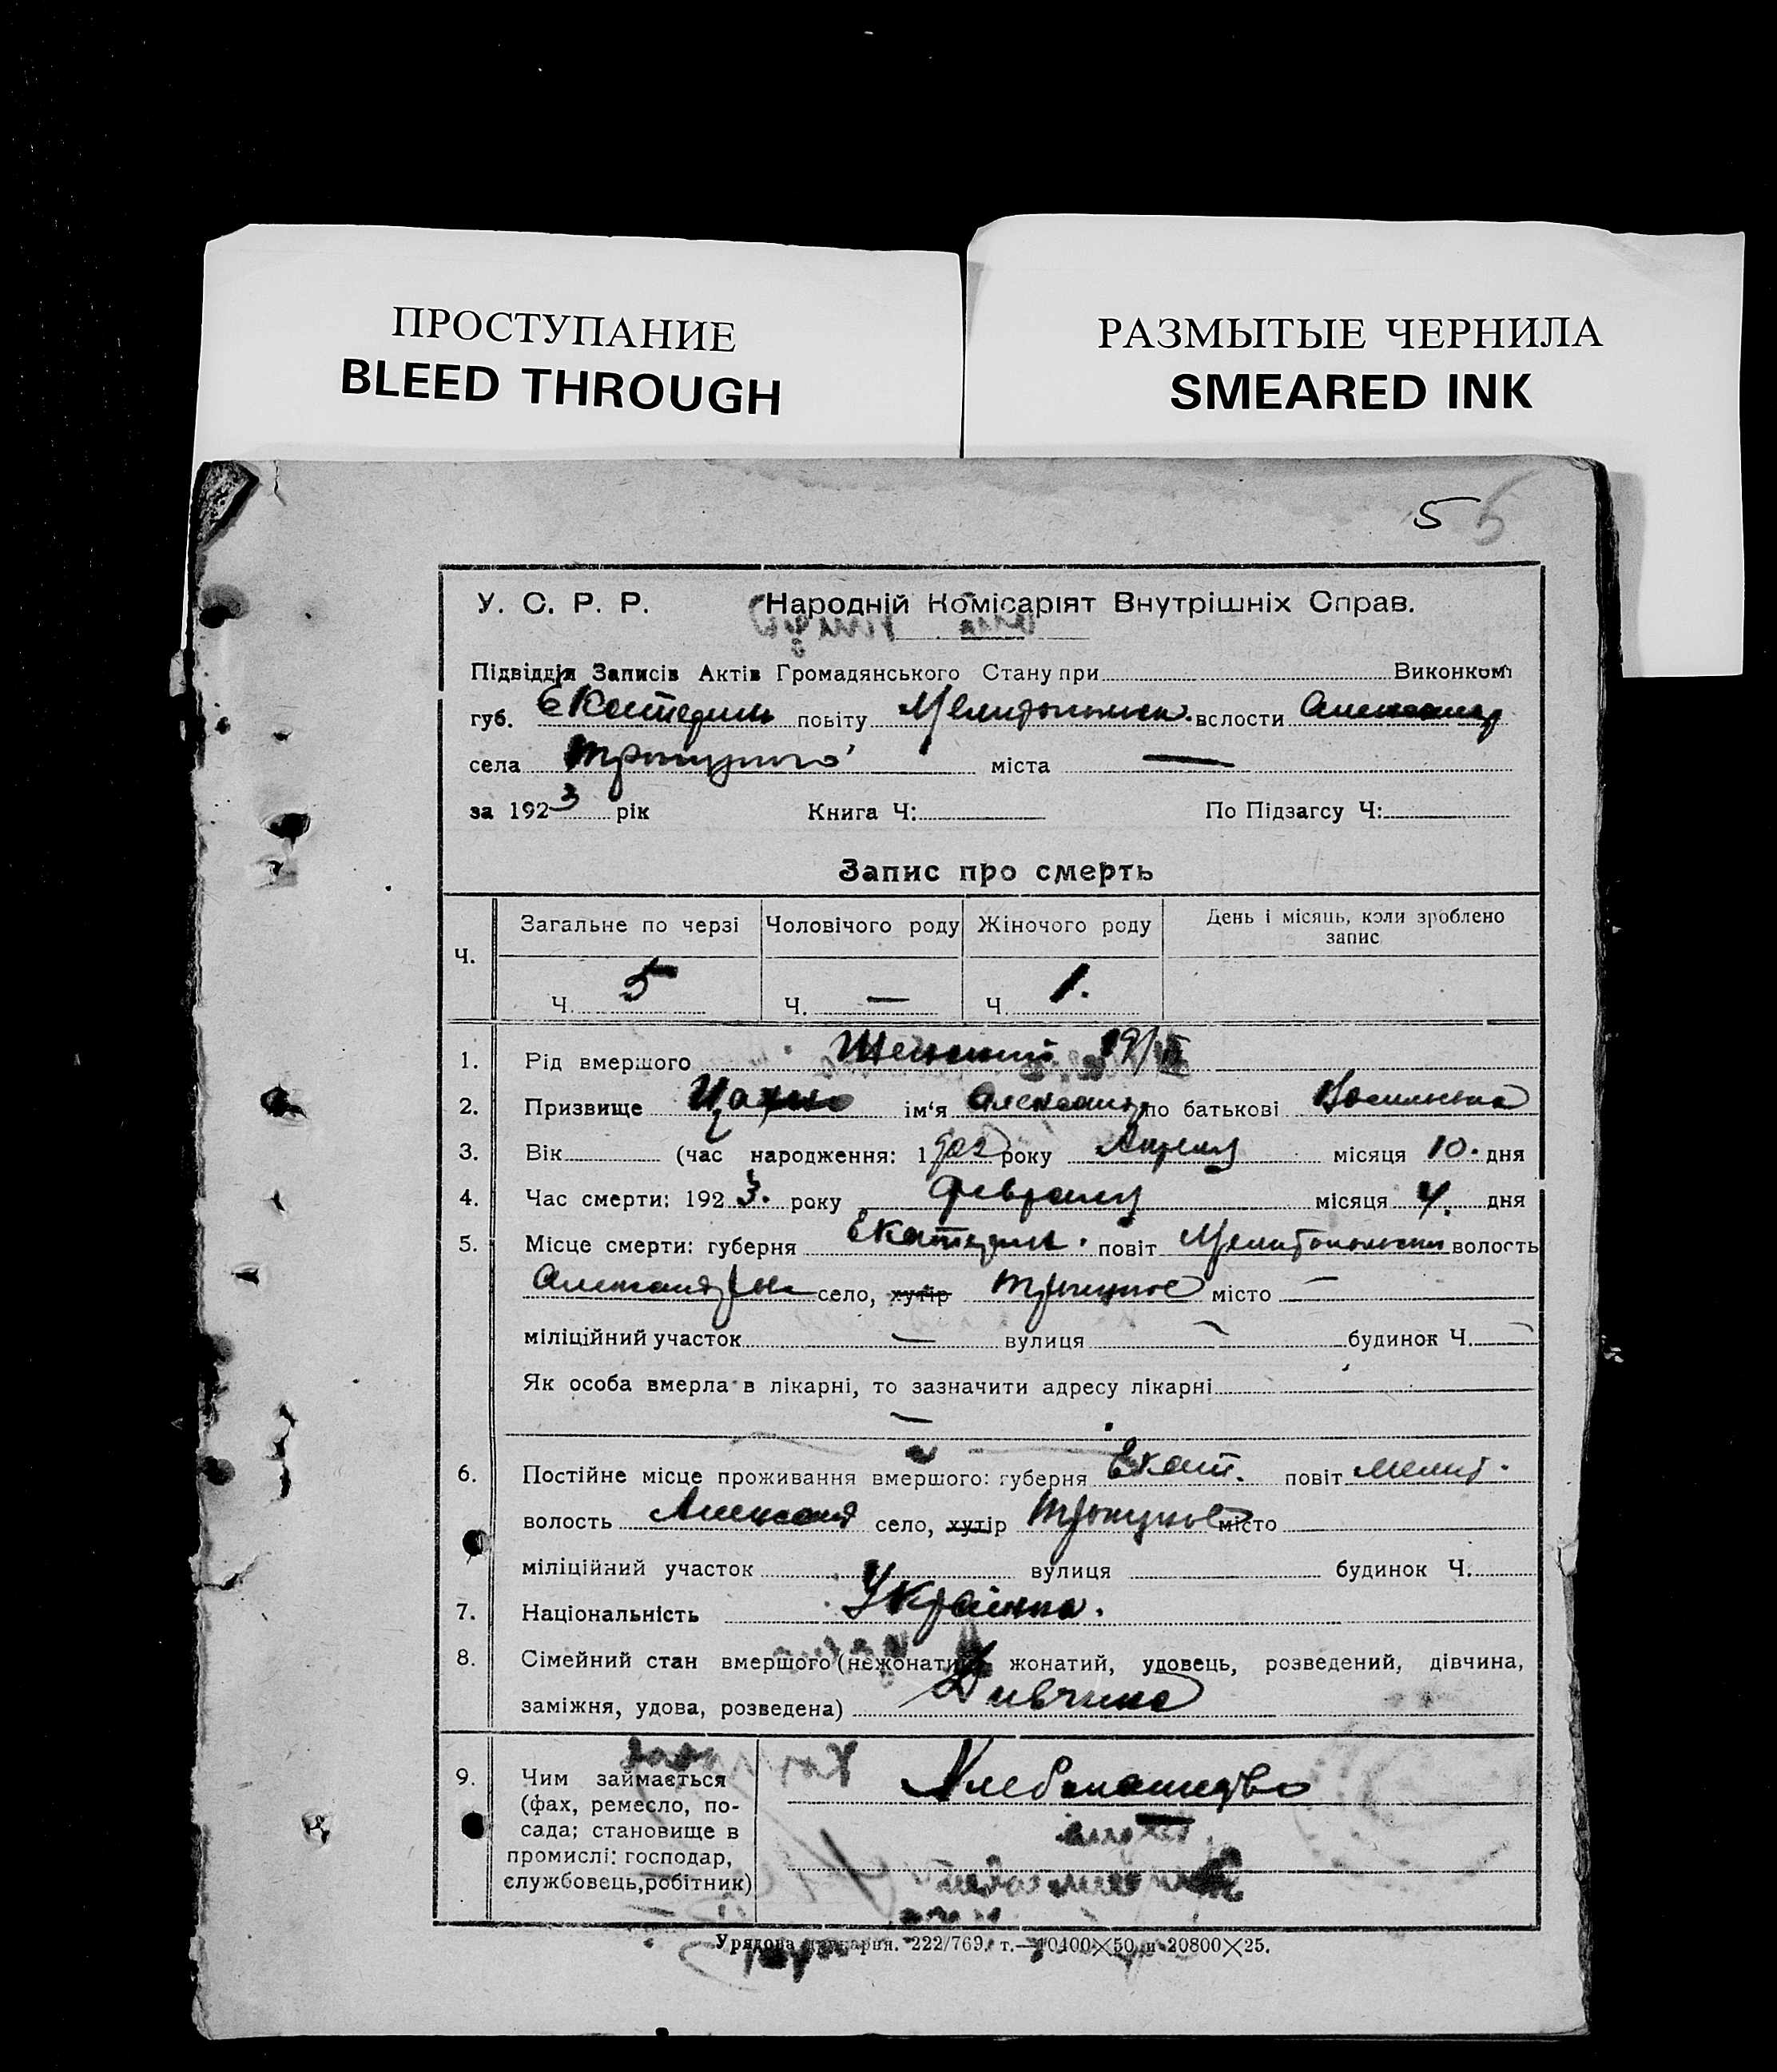 ПРОСТУПАНИЕ
BLEED THROUGH
РАЗМЫТЫЕ ЧЕРНИЛА
SMEARED INK
5 5
У. С. Р. Р. Народній Комісаріят Внутрішніх Справ.
Підвідділ Записів Актів Громадянського Стану при Виконком
губ. Екатерин повіту Мелитопольск. волости Александр
села Троицкого міста —
за 1923 рік Книга Ч: По Підзагсу Ч:
Запис про смерть
Ч. Загальне по черзі Чоловічого роду Жіночого роду День і місяць, коли зроблено запис
Ч. 5 Ч. — Ч. 1.
1. Рід вмершого Женский
2. Призвище ім'я Александр по батькові Васильевна
3. Вік (час народження: 1902 року Апреля місяця 10. дня
4. Час смерти: 1923. року февраля місяця 4. дня
5. Місце смерти: губерня Екатерин. повіт Мелитопольский волость
Александров село, хутір Троицкое місто —
міліційний участок — вулиця — будинок Ч. —
Як особа вмерла в лікарні, то зазначити адресу лікарні
—
6. Постійне місце проживання вмершого: губерня Екат. повіт Мелит.
волость Александ село, хутір Троицкое місто
міліційний участок вулиця будинок Ч.
7. Національність Украінка.
8. Сімейний стан вмершого (нежонатий, жонатий, удовець, розведений, дівчина,
заміжня, удова, розведена) Дивчина
9. Чим займається Хлебопашество
(фах, ремесло, по-
сада; становище в —
промислі: господар,
службовець, робітник)
Урядова друкарня. 222/769. т.—10400×50 и 20800×25.